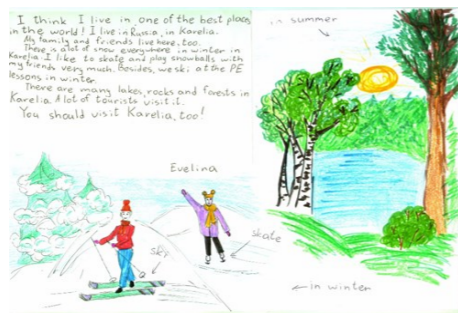 I think I live in one of the best places
in the world! I live in Russia, in Karelia.
My family and friends live here, too.
There is a lot of snow everywhere in winter in
Karelia I like to skate and play snowballs with
my friends very much. Besides, we ski at the PE
lessons in winter.
There are many lakes, rocks and forests in
Karelia. A lot of tourists visit it.
You should visit Karelia, too!
in summer
Evelina
skate
sky
in winter